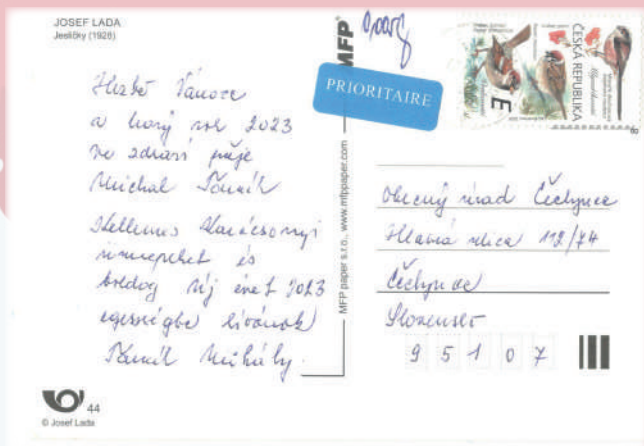 JOSEF LADA
Jesličky (1928)
Vánoce
a nový rok 2023
ve zdraví přeje
Michal
Kellemes Karácsonyi
ünnepeket és
boldog új évet 2023
egészségbe kívánok
Mihály.
44
© Josef Lada
MFP
MFP paper s.r.o., www.mfppaper.com
PRIORITAIRE
ČESKÁ REPUBLIKA
E
Obecný úrad Čechynce
Hlavná ulica 112/74
Čechynce
Slovensko
95107